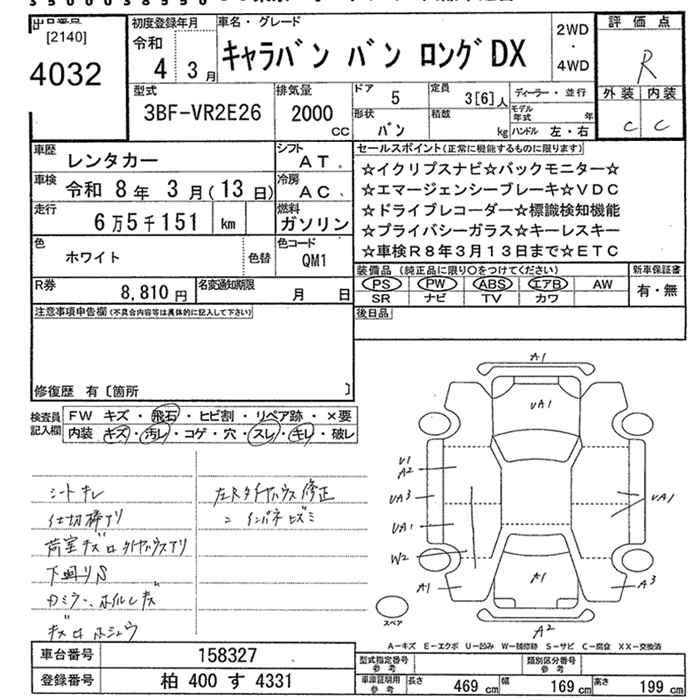 出品番号
[2140]
4032
初度登録年月
令和
4年 3月
車名・グレード
キャラバン バン ロングDX
2WD
・
4WD
評価点
R
外装 内装
C C
型式
3BF-VR2E26
排気量
2000
CC
ドア
5
定員
3[6]人
ディーラー・並行
形状
バン
積載
kg
モデル年式 年
ハンドル 左・右
車歴
レンタカー
シフト
AT
車検
令和 8年 3月(13日)
冷房
AC
走行
6万5千151 km
燃料
ガソリン
色
ホワイト
色替
色コード
QM1
R券
8,810円
名変通知期限
月 日
セールスポイント(正常に機能するものに限ります)
☆イクリプスナビ☆バックモニター☆
☆エマージェンシーブレーキ☆VDC
☆ドライブレコーダー☆標識検知機能
☆プライバシーガラス☆キーレスキー
☆車検R8年3月13日まで☆ETC
装備品 (純正品に限り○をつけてください)
PS PW ABS エアB AW
SR ナビ TV カワ
新車保証書
有・無
注意事項申告欄(不具合内容等は具体的に記入して下さい)
後日品
修復歴 有〔箇所 〕
検査員記入欄
FW キズ・飛石・ヒビ割・リペア跡・×要
内装 キズ・汚レ・コゲ・穴・スレ・キレ・破レ
シートキレ
仕切棒アリ
荷室キズ タイヤハウスアリ
下廻りS
カミラー、ホイルキズ
左Rタイヤハウス修正
〃 インパネヒズミ
A1
UA1
U1
A2
UA3
UA1
W2
A1
UA1
A1
A3
A2
スペア
A-キズ E-エクボ U-凹み W-補修跡 S-サビ C-腐食 XX-交換済
車台番号
158327
登録番号
柏 400 す 4331
型式指定番号
参考
類別区分番号
参考
車庫証明用
参考
長さ 469 cm
幅 169 cm
高さ 199 cm